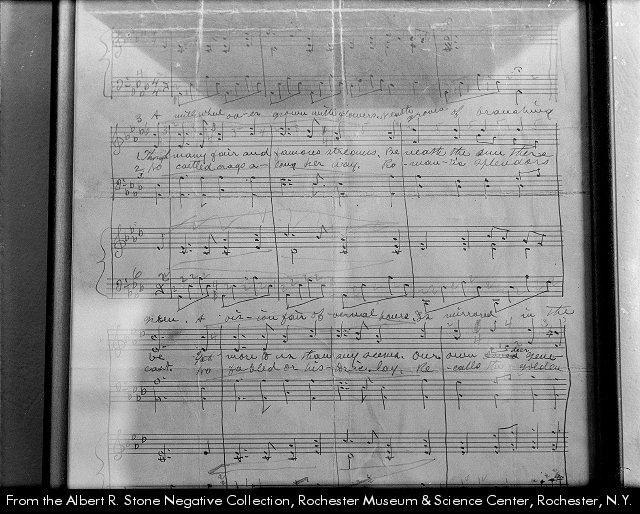 3. A with grown with flowers, groves of branching
1. Though many fair and famous streams, Be neath the sun there
2. No castled crags a - long her way. Ro - man - tic splendors
A vis - ion fair of vernal bowers, Is mirrored in the
be. Yet more to us than any seems. Our own dear Gene-
cast. No fabled or his - toric lay, Re - calls the golden
From the Albert R. Stone Negative Collection, Rochester Museum & Science Center, Rochester, N.Y.